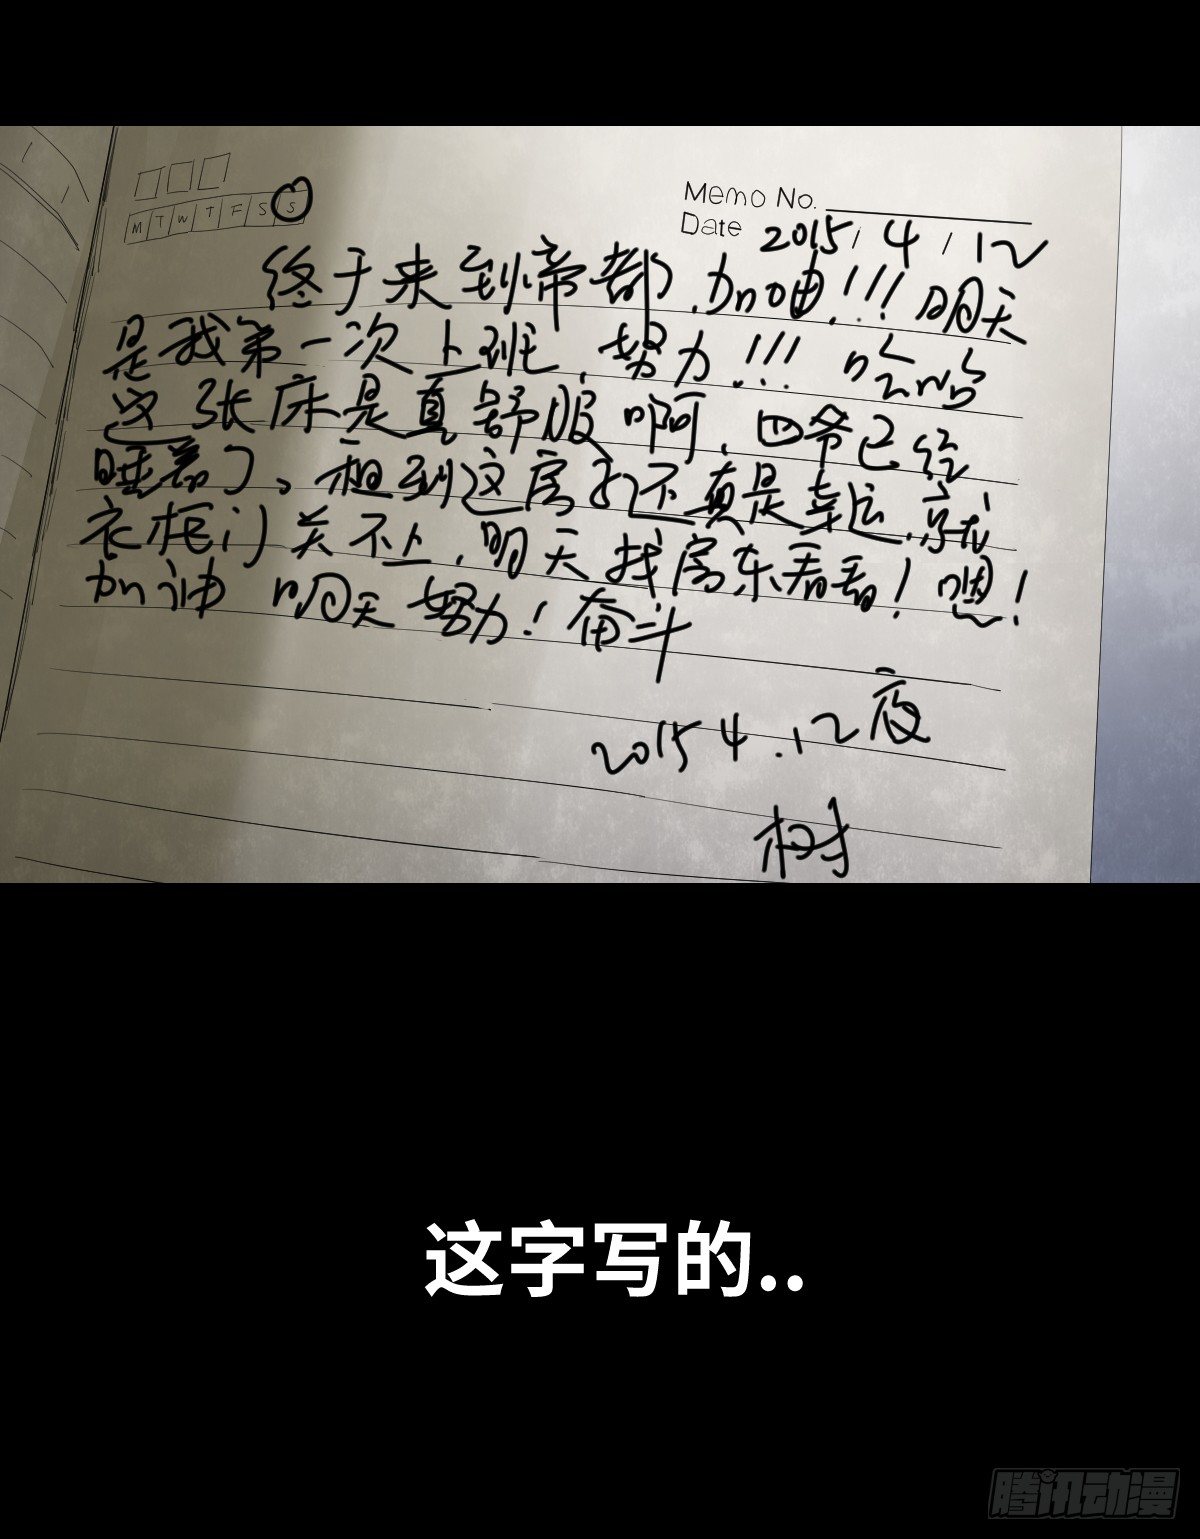 M T W T F S S
Memo No.
Date 2015/4/12
终于来到帝都,加油!!!明天
是我第一次上班,努力!!!哈哈
这张床是真舒服啊,四爷已经
睡着了。租到这房子不真是幸运,就
衣柜门关不上,明天找房东看看!嗯!
加油 明天努力!奋斗
2015 4.12夜
树
这字写的..
腾讯动漫